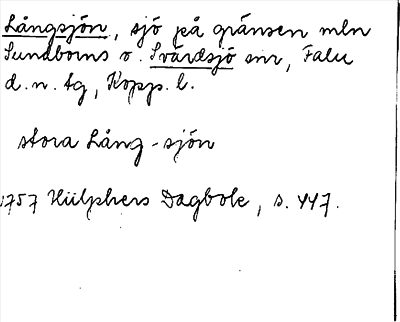 Långsjön, sjö på gränsen mln
Sundborns o. Svärdsjö snr, Falu
d. n. tg, Kopps. l.
stora Lång-sjön
1757 Hülphers Dagbok, s. 447.